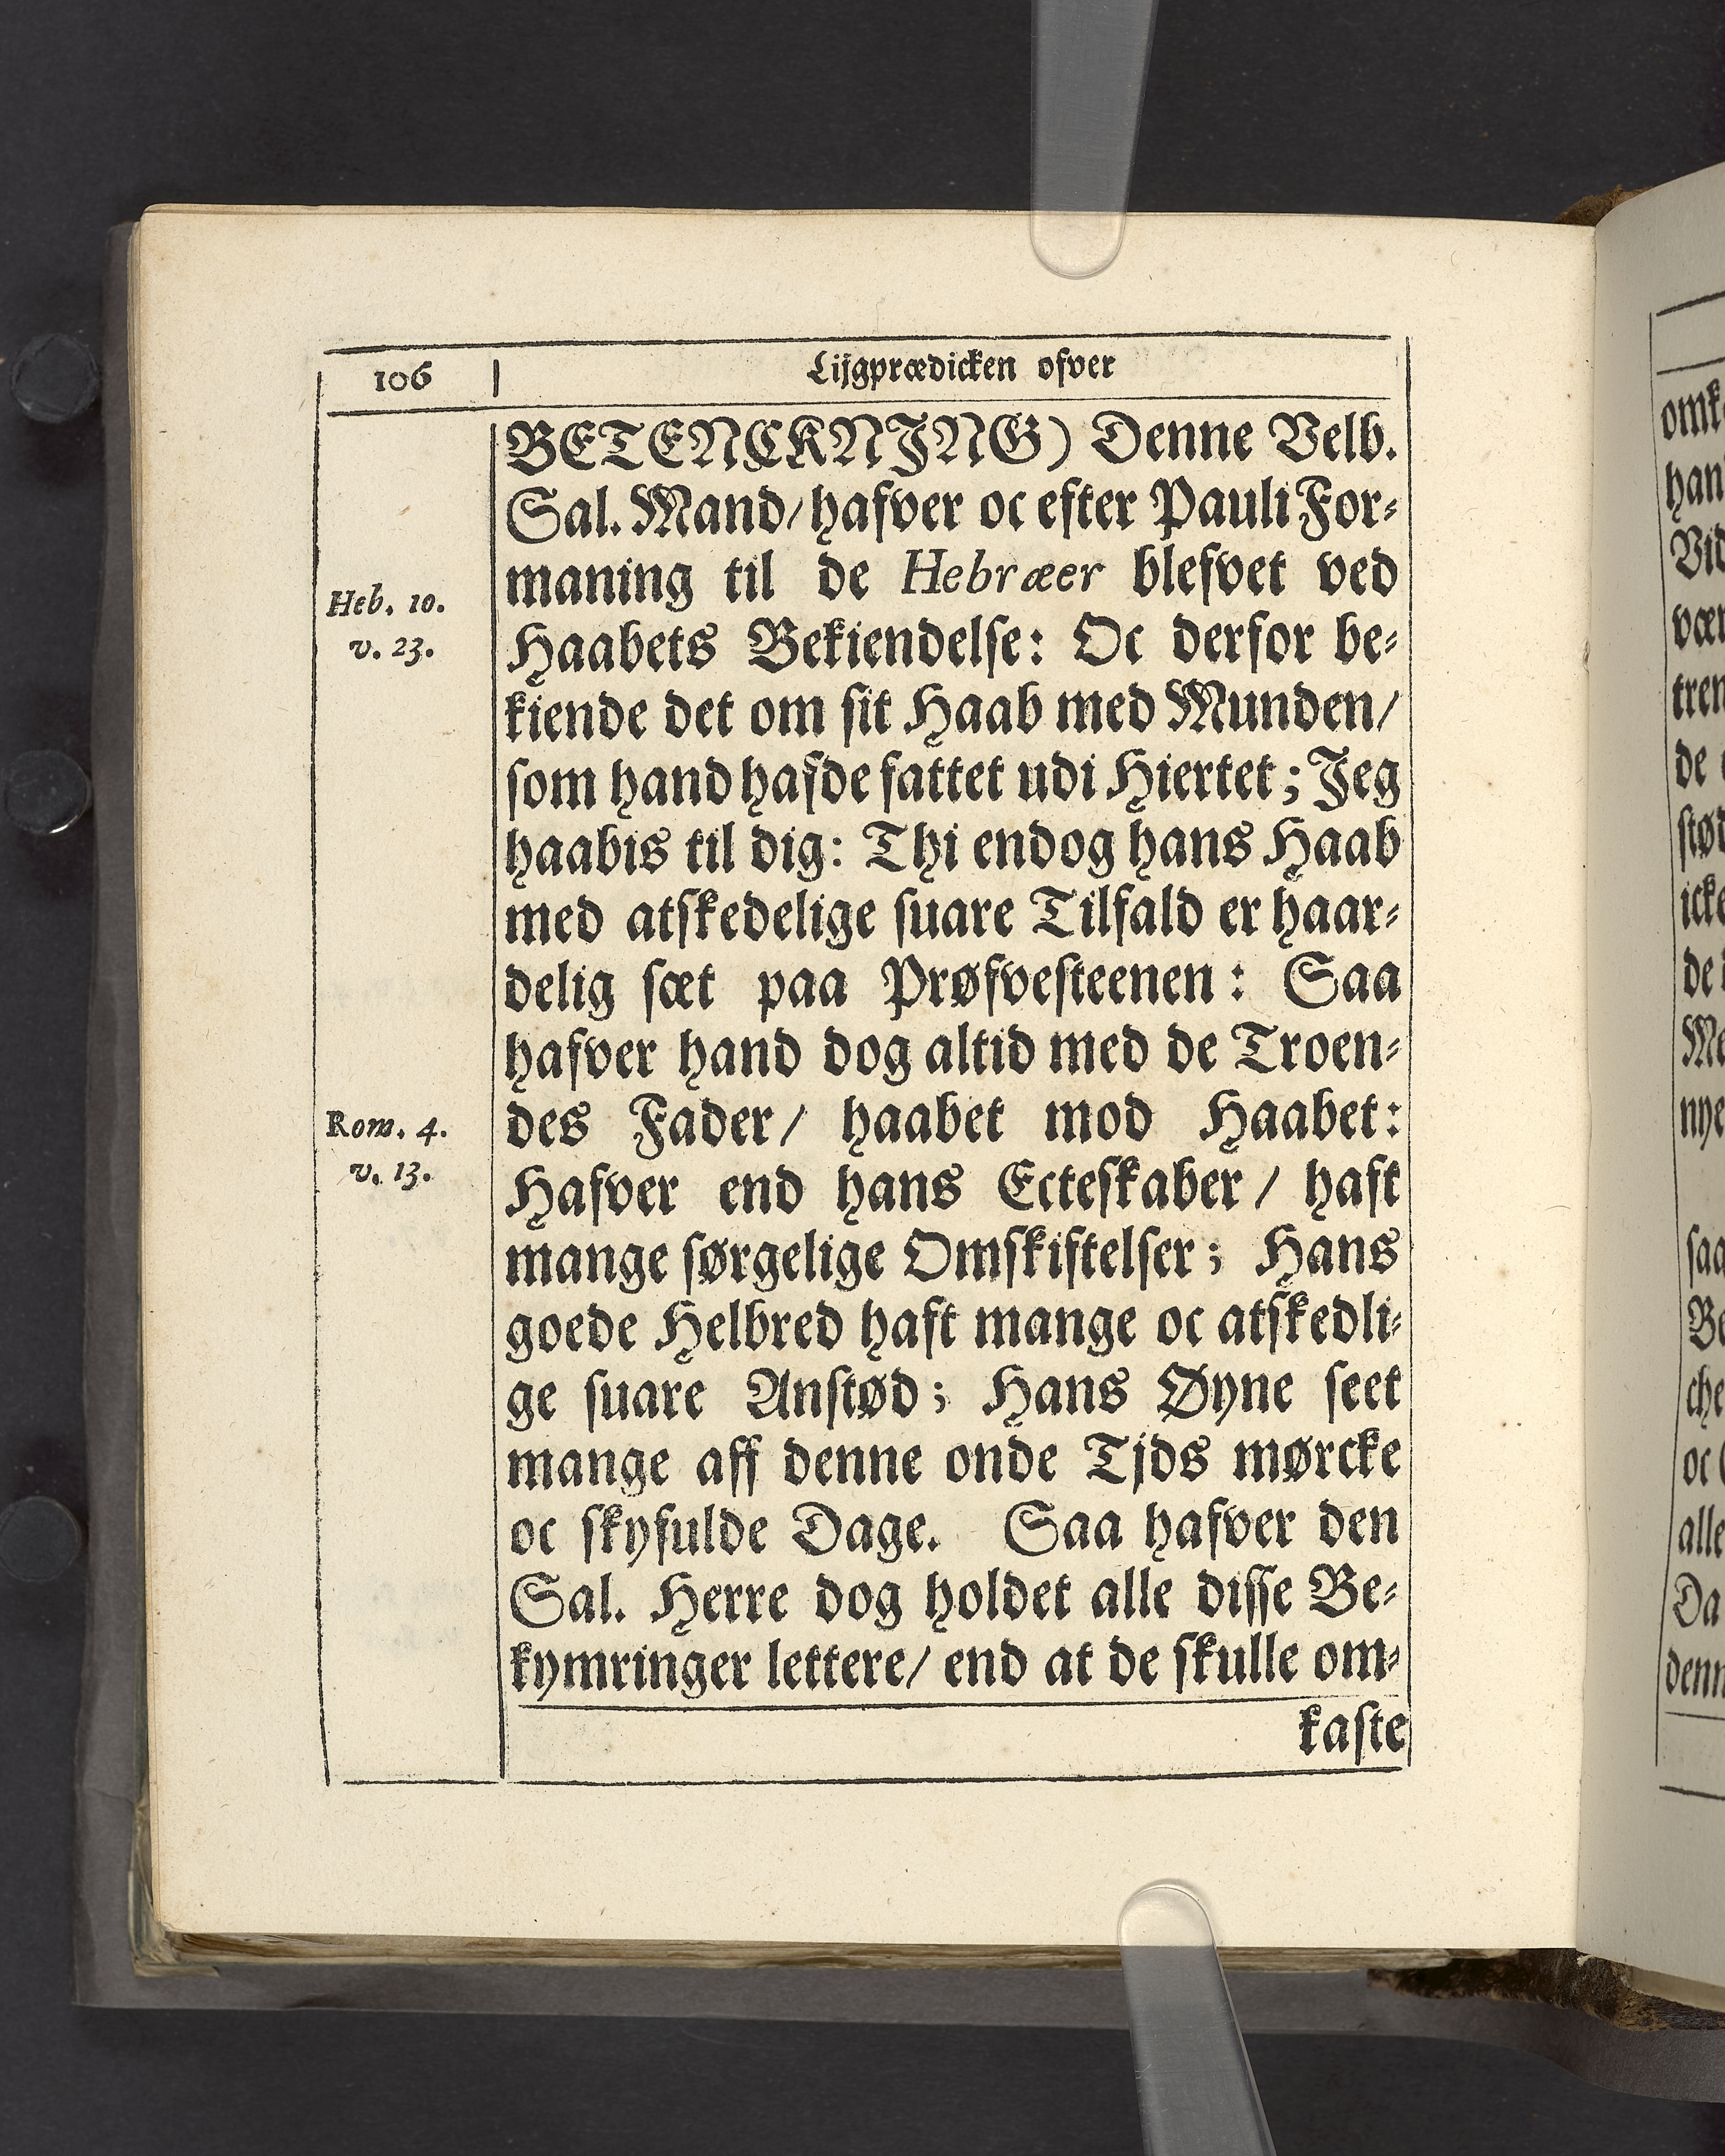 106
Lijgprædicken ofver
BETENCKNJNG) Denne Velb.
Sal. Mand/ hafver oc efter Pauli For-
maning til de Hebræer blefvet ved
Haabets Bekiendelse: Oc derfor be-
kiende det om sit Haab med Munden/
som hand hafde fattet udi Hiertet; Jeg
haabis til dig: Thi endog hans Haab
med atskedelige suare Tilfald er haar-
delig sæt paa Prøfvesteenen: Saa
hafver hand dog altid med de Troen-
des Fader/ haabet mod Haabet:
Hafver end hans Ecteskaber/ haft
mange sørgelige Omskiftelser; Hans
goede Helbred haft mange oc atskedli-
ge suare Anstød; Hans Øyne seet
mange aff denne onde Tjds mørcke
oc skyfulde Dage. Saa hafver den
Sal. Herre dog holdet alle disse Be-
kymringer lettere/ end at de skulle om-
kaste
Heb. 10.
v. 23.
Rom. 4.
v. 13.